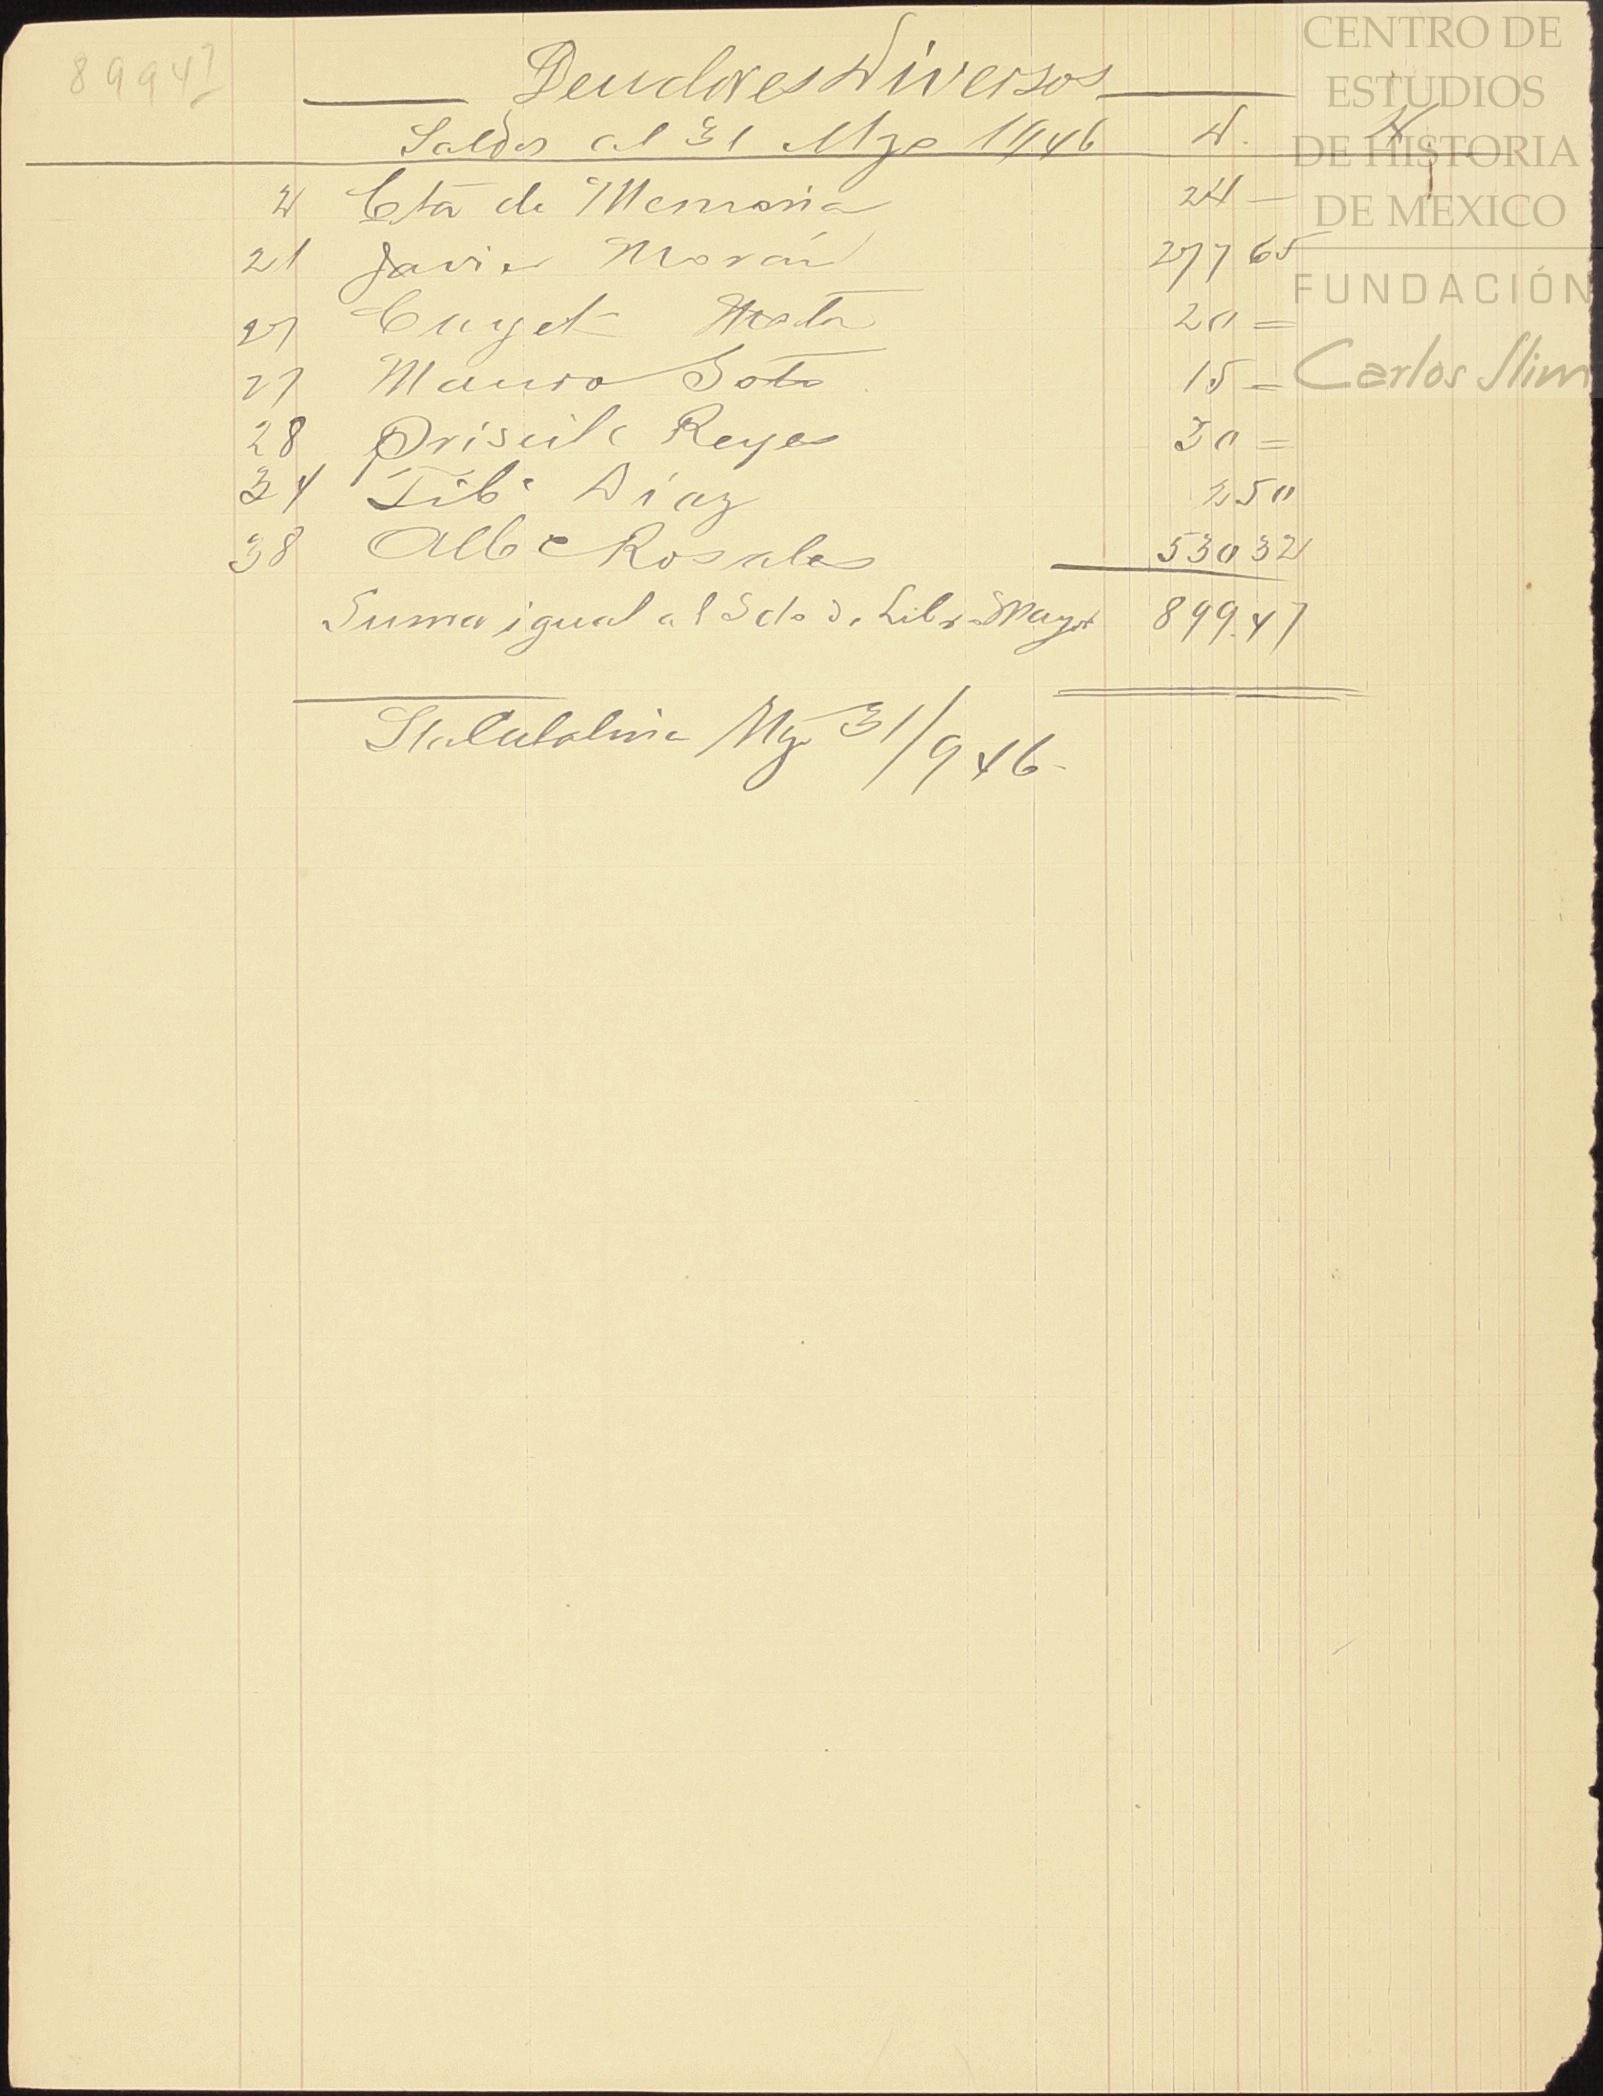 89947
Deudores Diversos
Saldos al 31 Mzo 1946 D. H
2 Cta de Memoria 24 —
21 Javier Morán 277 65
27 Cayet Mata 20 =
27 Mauro Soto 15 =
28 Priscil Reyes 30 =
34 Tibo Díaz 2 50
38 Alb Rosales 530 32
Suma igual al Sdo de Libro Mayor 899.47
Sta Catalina Mzo 31/946-
CENTRO DE
ESTUDIOS
DE HISTORIA
DE MEXICO
FUNDACIÓN
Carlos Slim